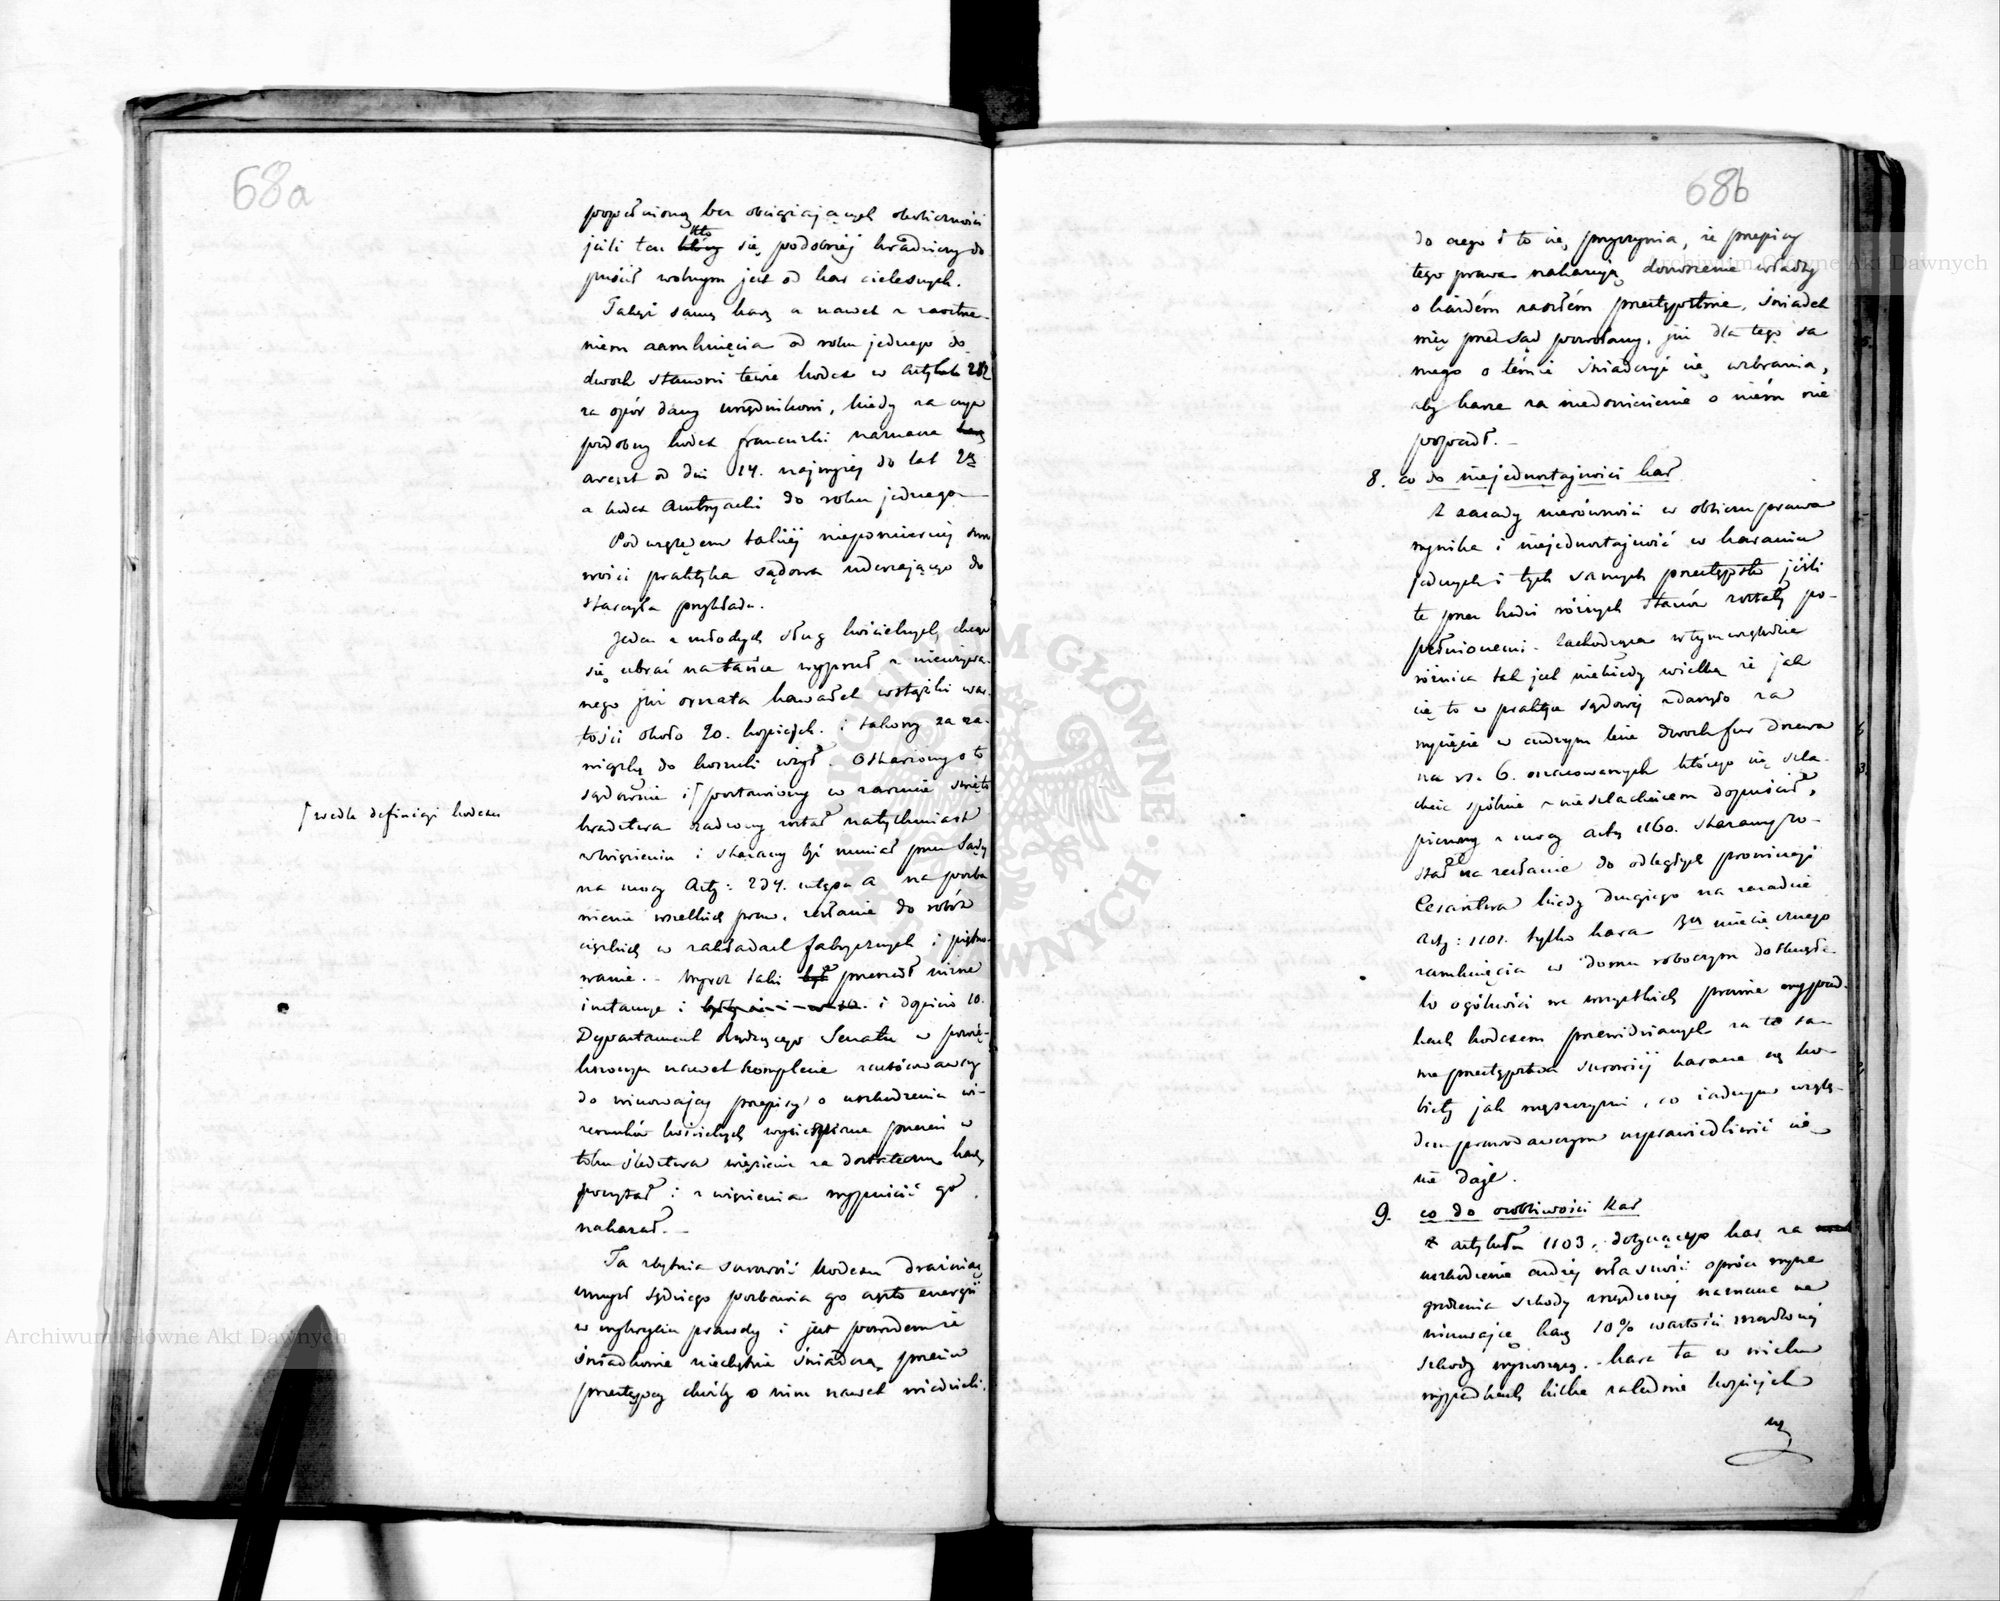 68a
popełnioną bez obciążających okoliczności
jeśli ten kto się podobnéj kradzieży do
puścił wolnym jest od kar cielesnych.
Takąż samą karę a nawet z zaostrze-
niem zamknięcia od roku jednego do
dwóch stanowi tenże kodex w artykule 282
za opór dany urzędnikowi, kiedy za czyn
podobny kodex francuzki naznacza
areszt od dni 14. najwyżéj do lat 2ch
a kodex Austryacki do roku jednego
Pod względem takiéj niepomiernéj suro
wości praktyka sądowa uderzającego do
starczyła przykładu.
Jeden z młodych sług kościelnych, chcąc
się ubrać na tańce wypruł z nieużywa-
nego już ornata kawałek wstążki war-
tości około 20. kopiejek. i takowy za za-
wiązkę do koszuli użył. Oskarżony o to
sądownie i postawiony w zarzucie święto
kradztwa
Γ wedle definicyi kodexu
uwięzieniu i skazany był musiał przez Sądy
na mocy Arty: 234. ustępu a na pozba
wienie wszelkich praw, zesłanie do robót
ciężkich w zakładach fabrycznych i piętno-
wanie. - Wyrok taki przeszedł niższe
instancye i dopiéro 10.
Departament Rządzącego Senatu w powię-
kszonym nawet komplecie zastósowawszy
do winowajcy przepisy o uszkodzeniu wi-
zerunków kościelnych wycierpiane przezeń w
toku śledztwa więzienie za dostateczną karę
poczytał i z więzienia wypuścić go
nakazał. -
Ta zbytnia surowość kodexu drażniąc
umysł sędziego pozbawia go często energii
w wykryciu prawdy i jest powodem że
świadkowie niechętnie świadczą przeciw
przestępcy choćby o nim nawet wiedzieli.
68b
do czego i to się przyczynia, że przepisy
tego prawa nakazują donoszenie władzy
o każdém zaszłém przestępstwie. Świadek
więc przed sąd powołany, już dla tego sa
mego o témże świadczyć się wzbrania,
aby karze za niedoniesienie o niém nie
popadł. -
8. co do niejednostajności kar
Z zasady nierówności w obliczu prawa
wynika i niejednostajność w karaniu
jednych i tych samych przestępstw jeśli
te przez ludzi różnych stanów zostały po-
pełnionemi. Zachodząca w tym względzie
różnica tak jest niekiedy wielką że jak
się to w praktyce sądowéj zdarzyło za
wycięcie w cudzym lesie dwóch fur drzewa
na rs. 6. oszacowanych którego się szla-
chcic spólnie z nieszlachcicem dopuścił,
pierwszy z mocy arty 1160. skazany zo-
stał na zesłanie do odległych prowincyi
Cesarstwa kiedy drugiego na zasadzie
Arty: 1101. tylko kara 3ch miesięcznego
zamknięcia w domu roboczym dotknęła.
W ogólności we wszystkich prawie wypad-
kach kodexem przewidzianych za te sa-
me przestępstwa surowiéj karane są ko-
biety jak mężczyzni, co żadnym wzglę-
dem prawodawczym usprawiedliwić się
nie daje.
9. co do osobliwości kar
Z artykułu 1103, dotyczącego kar za
uszkodzenie cudzéj własności oprócz wyna
grodzenia szkody zrządzonéj naznacza na
winowajcę karę 10% wartości zrządzonéj
szkody wynoszącą. - Kara ta w wielu
wypadkach kilka zaledwie kopiejek